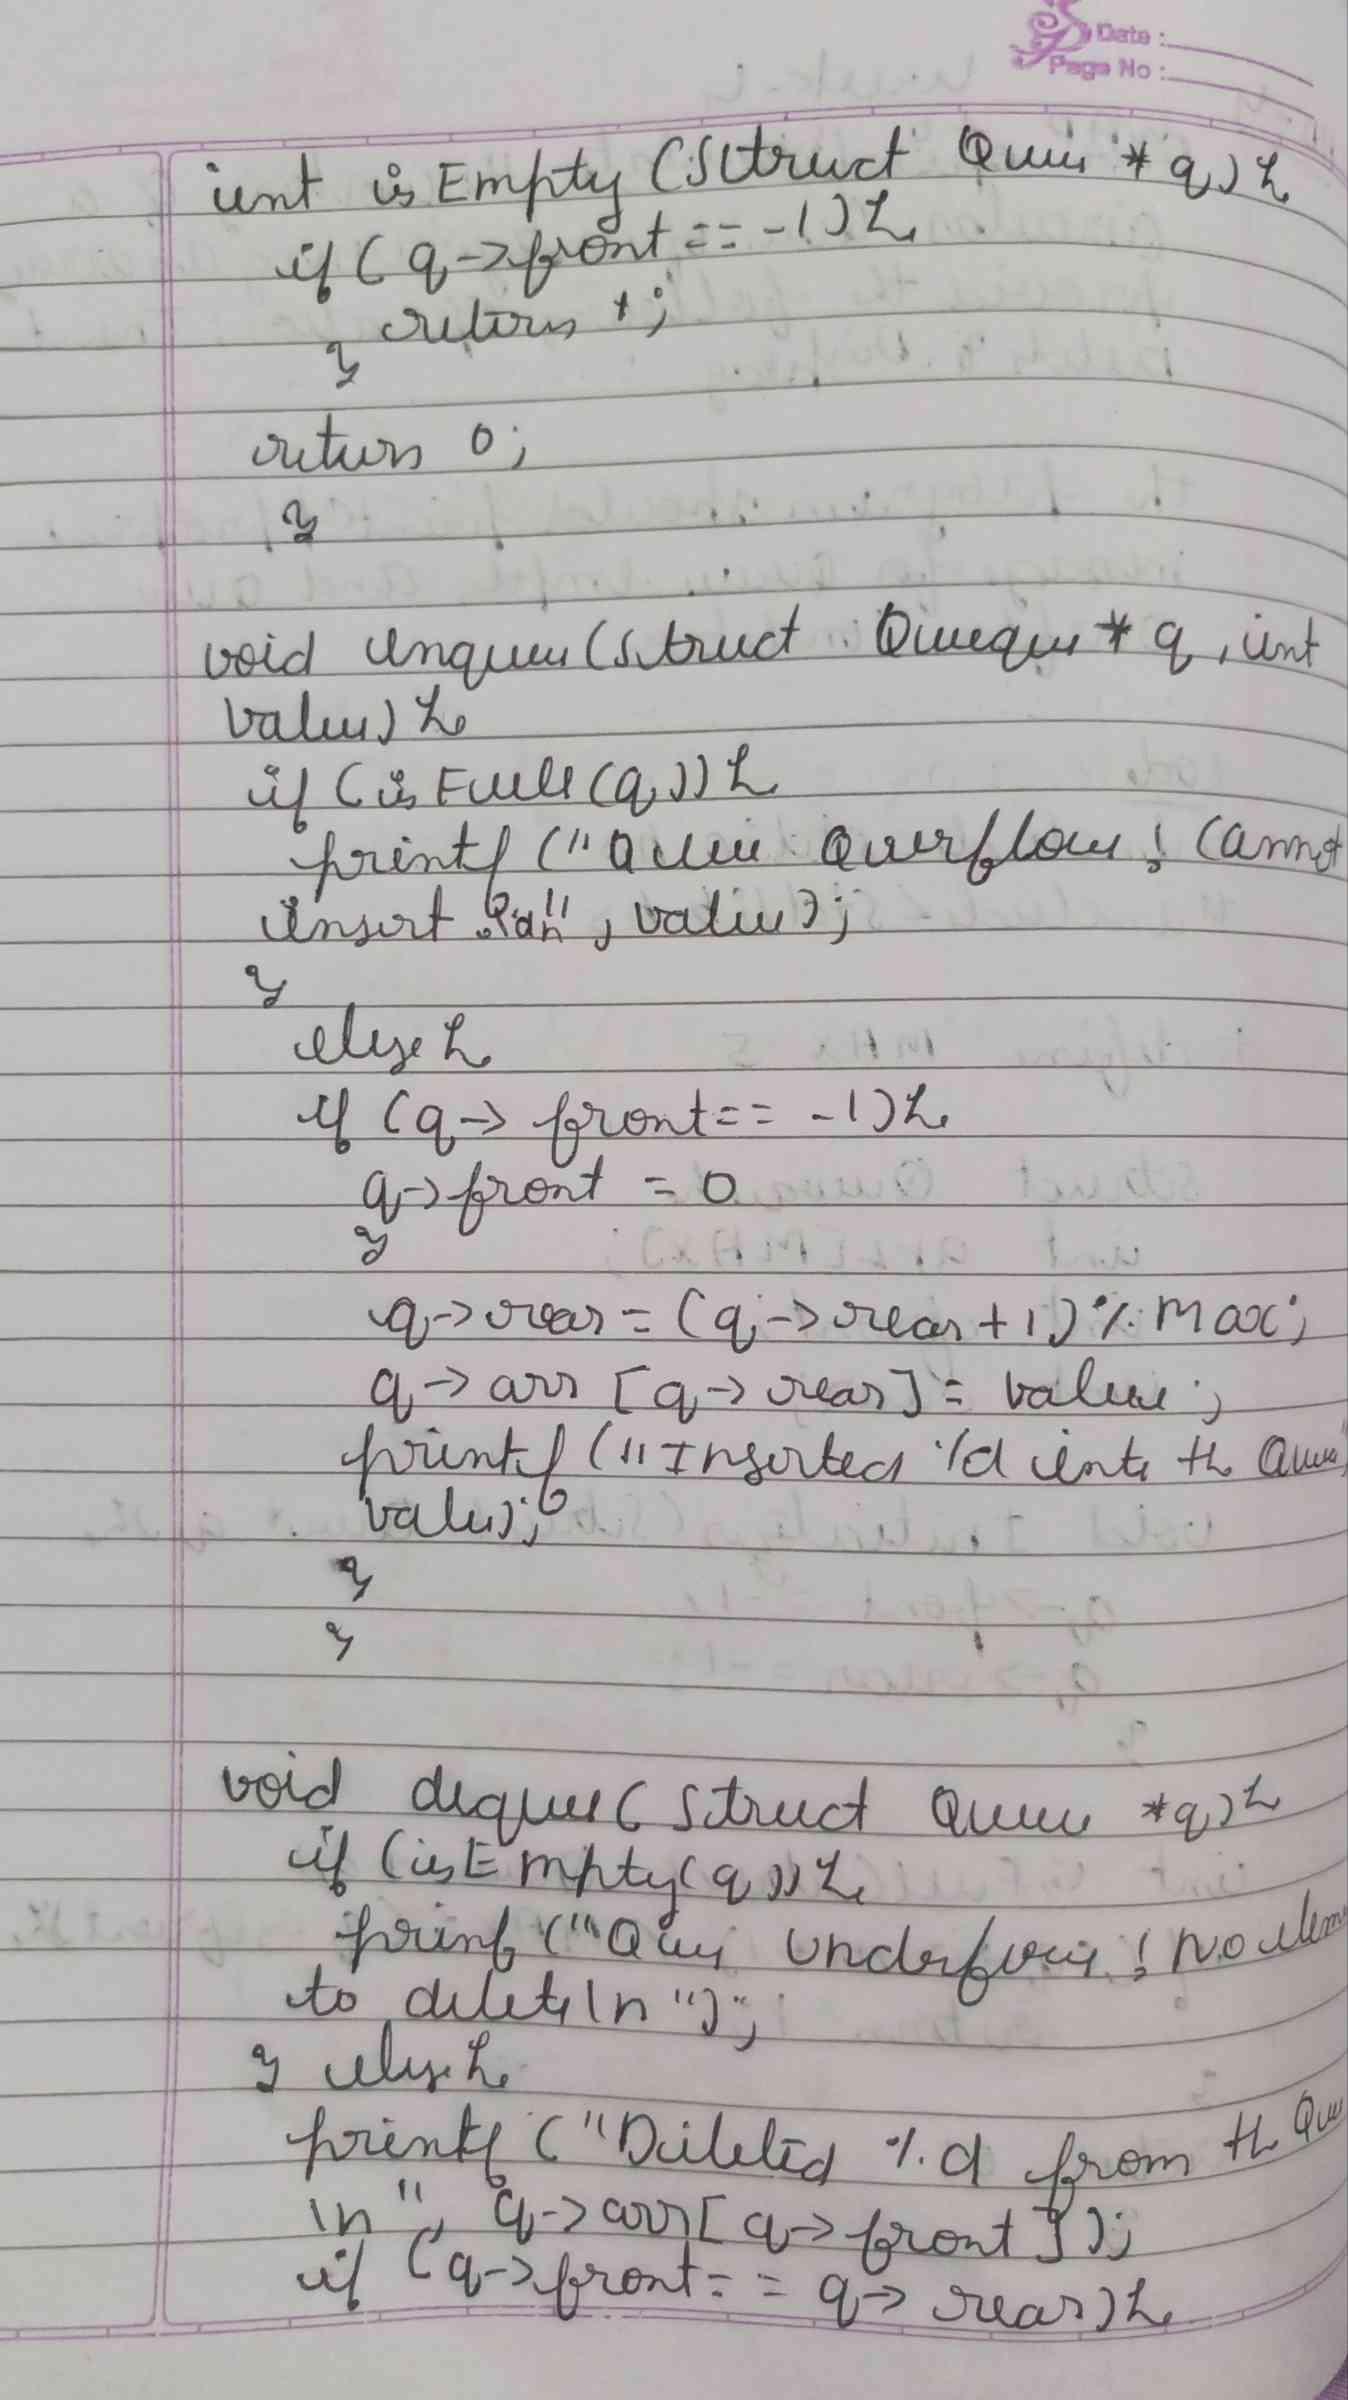 Date :
Page No :
int isEmpty (Struct Queue * q) {
if ( q->front == -1) {
return 1;
}
return 0;
}
void enqueue (struct Queue * q, int
value) {
if (isFull (q)) {
printf ("Queue Overflow! Cannot
insert %d\n", value);
}
else {
if (q-> front == -1) {
q->front = 0
}
q->rear = (q->rear + 1) % Max;
q->arr [q->rear] = value;
printf ("Inserted %d into the Queue"
value);
}
}
void dequeue (Struct Queue *q) {
if (isEmpty(q)) {
prinf ("Queue Underflow! No elem
to delete\n");
} else {
printf ("Deleted %d from the Que
\n", q->arr[q->front]);
if (q->front == q->rear) {